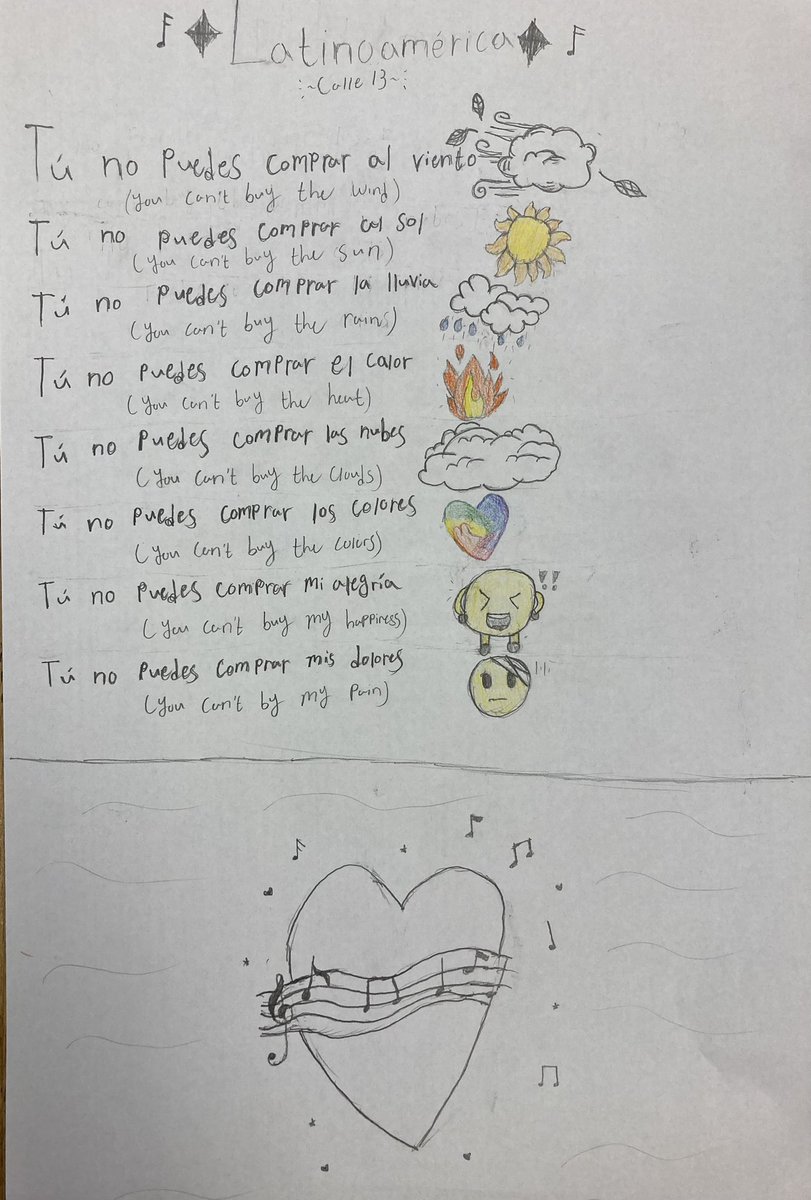 Latinoamérica
~Calle 13~
Tú no puedes comprar al viento
(you can't buy the wind)
Tú no puedes comprar al sol
(you can't buy the sun)
Tú no puedes comprar la lluvia
(you can't buy the rains)
Tú no puedes comprar el calor
(you can't buy the heat)
Tú no puedes comprar las nubes
(you can't buy the clouds)
Tú no puedes comprar los colores
(you can't buy the colors)
Tú no puedes comprar mi alegría
(you can't buy my happiness)
!!
Tú no puedes comprar mis dolores
(you can't by my pain)